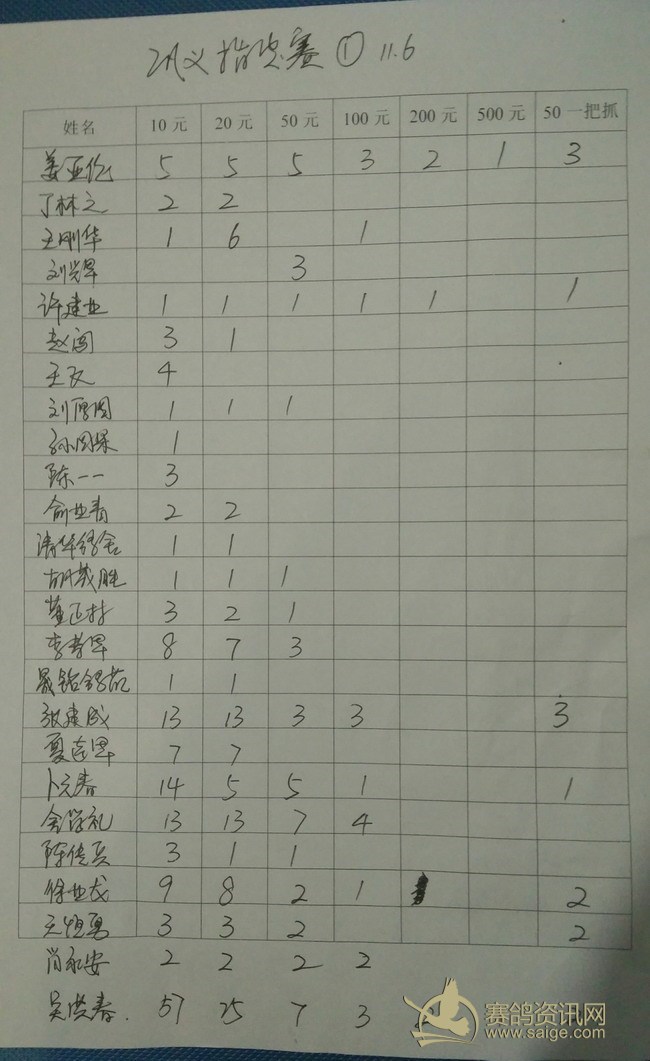 巩义指定赛 ① 11.6
姓名 10元 20元 50元 100元 200元 500元 50一把抓
姜亚伦 5 5 5 3 2 1 3
丁林之 2 2
王刚华 1 6 1
刘光军 3
许建业 1 1 1 1 1 1
赵阔 3 1
王 4
刘厚国 1 1 1
孙国保 1
陈一一 3
俞业青 2 2
清华鸽舍 1 1
胡茂胜 1 1 1
董正村 3 2 1
李寿军 8 7 3
晟铭鸽苑 1 1
张建成 13 13 3 3 3
夏连军 7 7
卜元春 14 5 5 1 1
金学礼 13 13 7 4
陈传兵 3 1 1
徐业龙 9 8 2 1 2
勇 3 3 2 2
肖永安 2 2 2 2
吴洪春. 57 25 7 3
赛鸽资讯网
www.saige.com